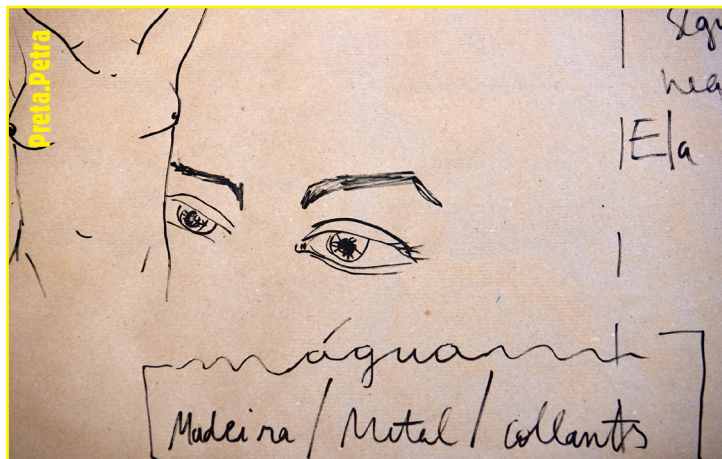 Preta.Petra
Ela
água
Madeira / Metal / collants